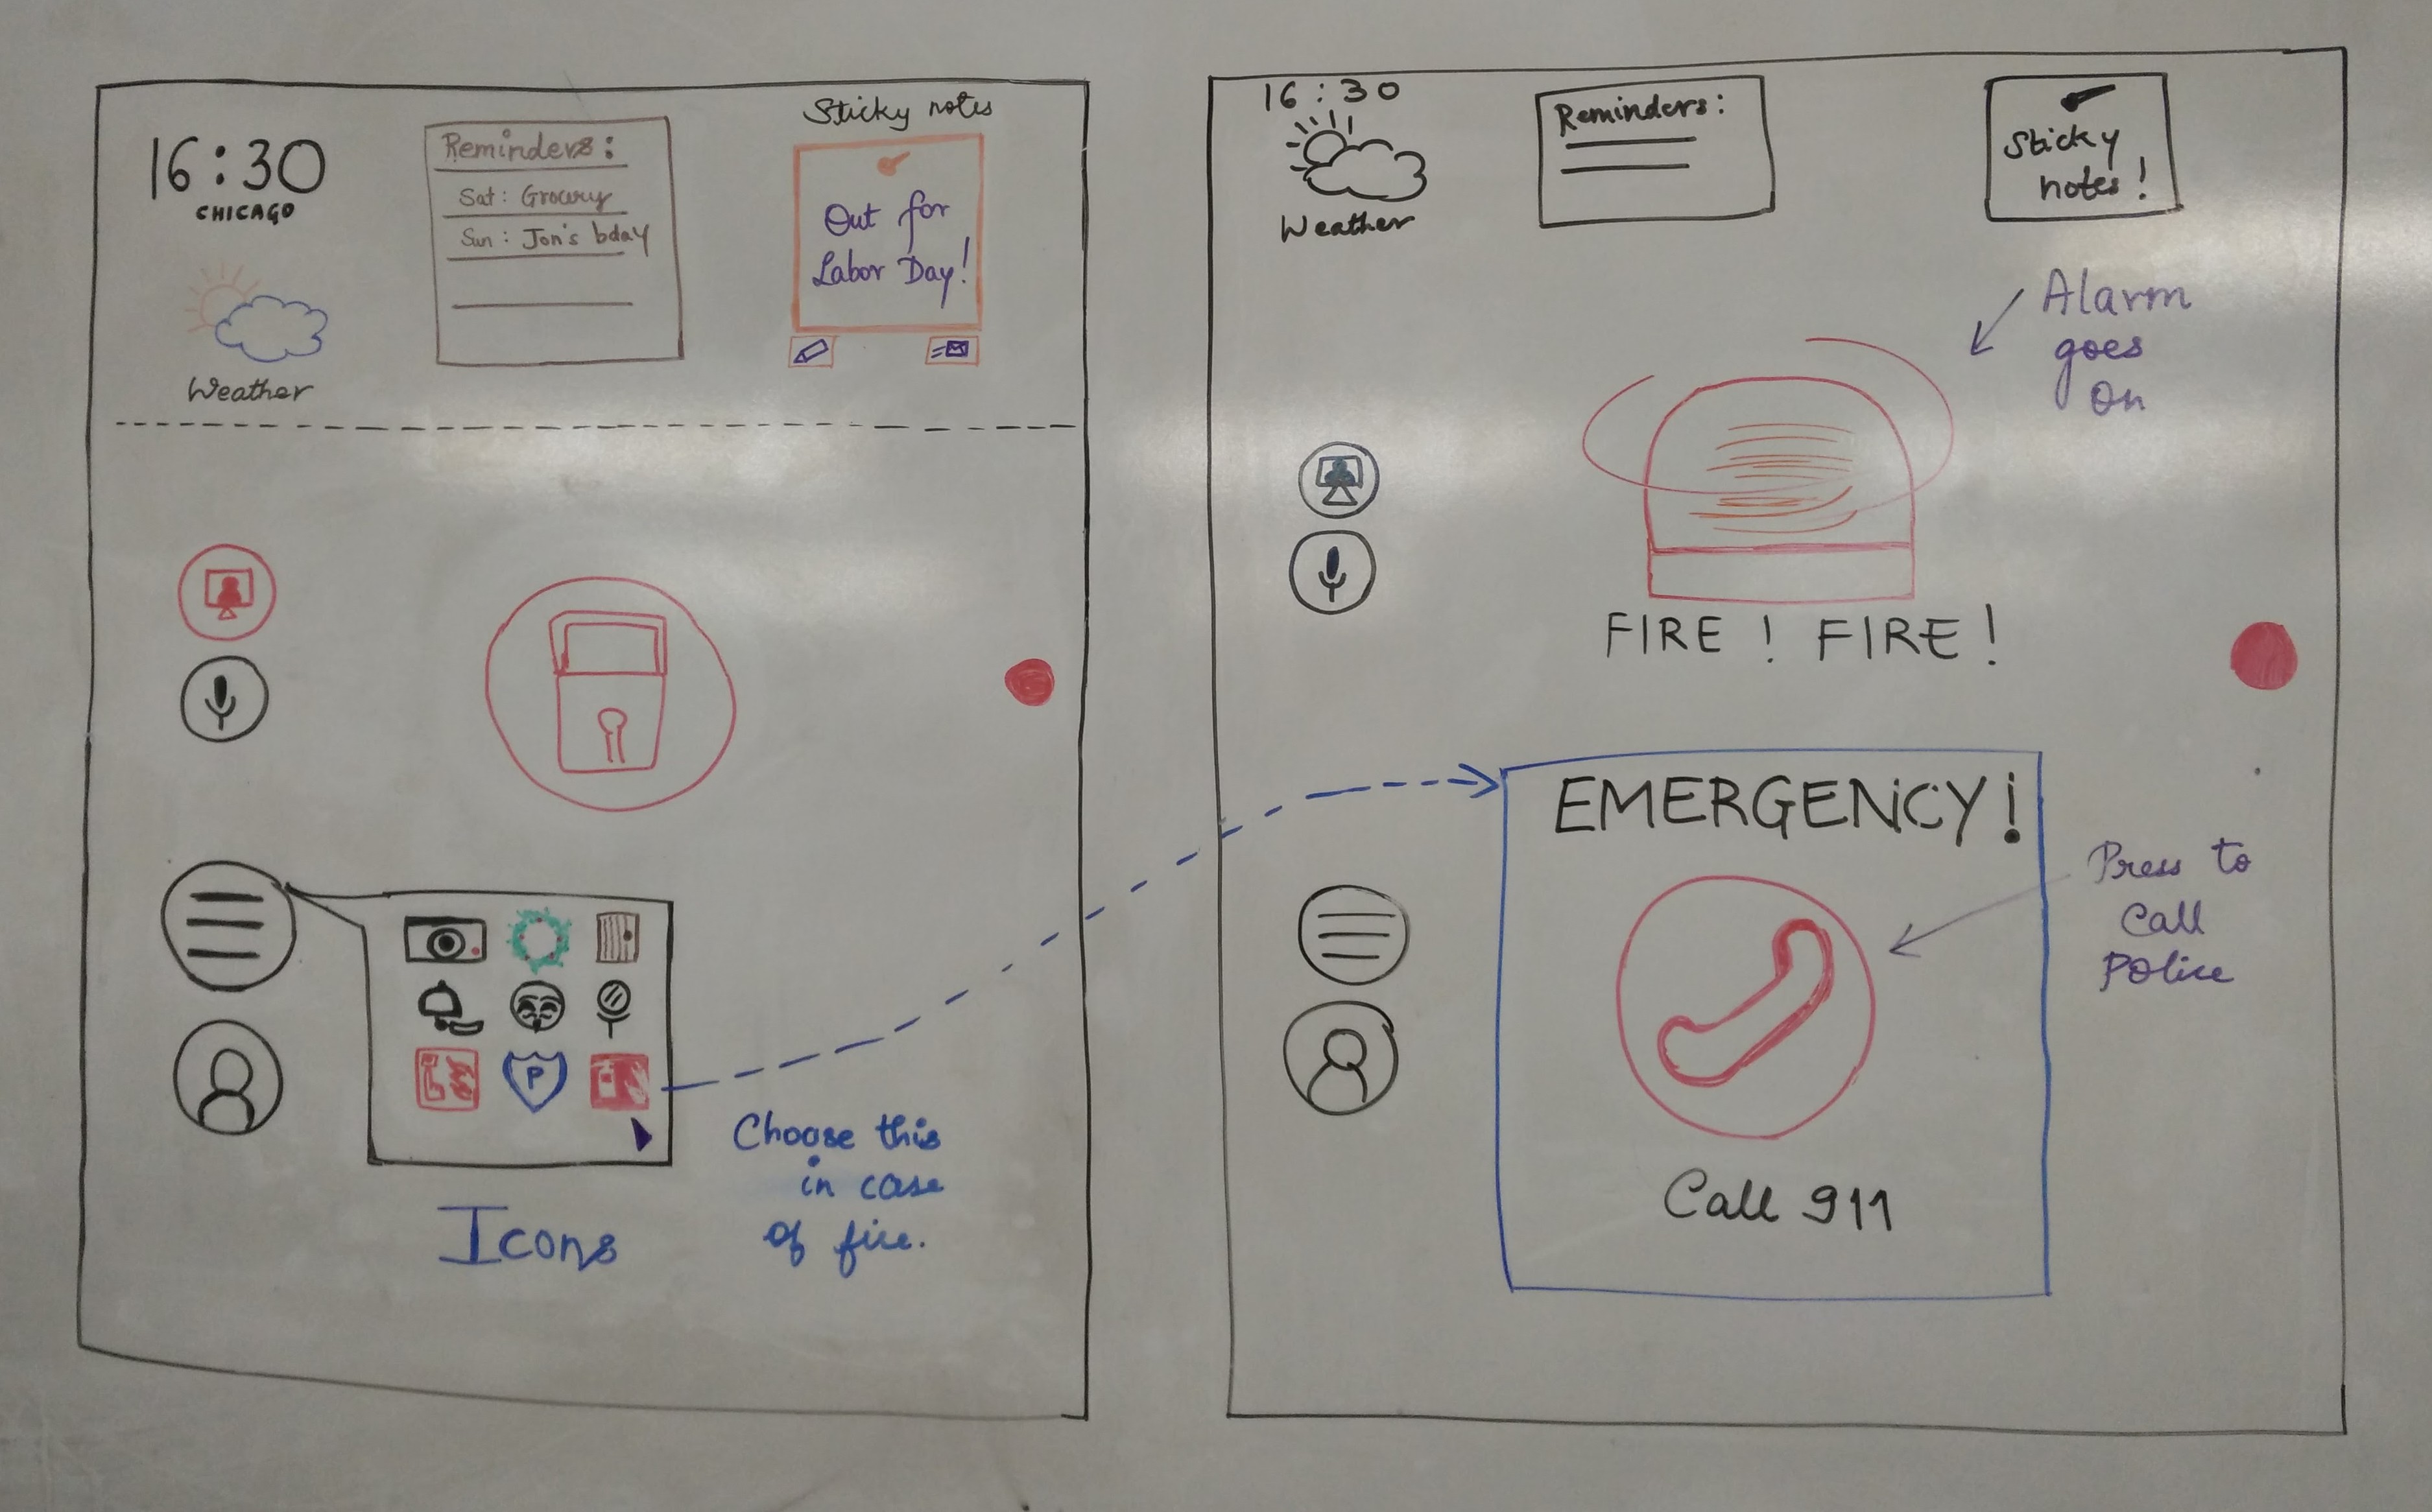 16:30
CHICAGO
Weather
Reminders:
Sat: Grocery
Sun: Jon's bday
Sticky notes
Out for
Labor Day!
P
Icons
Choose this
in case
of fire.
16:30
Weather
Reminders:
Sticky
notes!
Alarm
goes
On
FIRE! FIRE!
EMERGENCY!
Call 911
Press to
Call
Police